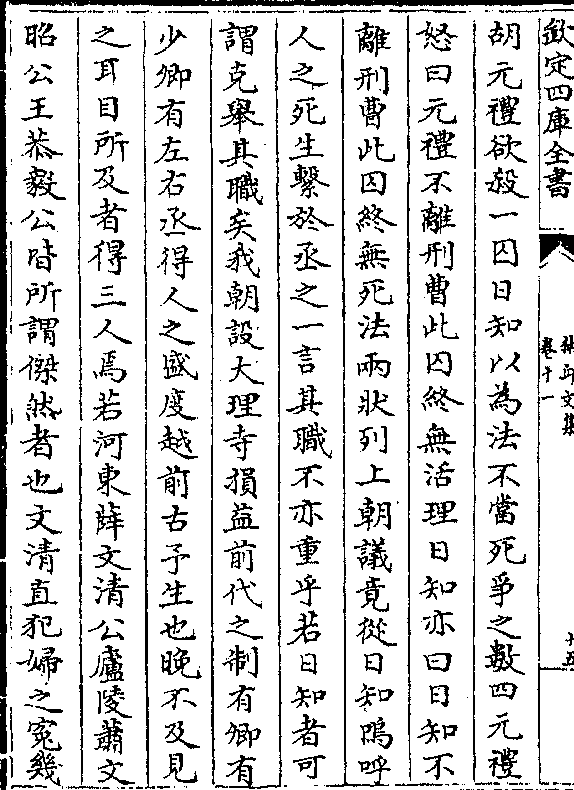 欽定四庫全書
卷十一
十五
胡元禮欲殺一囚日知以為法不當死爭之數四元禮
怒曰元禮不離刑曹此囚終無活理日知亦曰日知不
離刑曹此囚終無死法兩狀列上朝議竟從日知嗚呼
人之死生繫於丞之一言其職不亦重乎若日知者可
謂克舉其職矣我朝設大理寺損益前代之制有卿有
少卿有左右丞得人之盛度越前古予生也晚不及見
之耳目所及者得三人焉若河東薛文清公廬陵蕭文
昭公王恭毅公皆所謂傑然者也文清直犯婦之寃幾